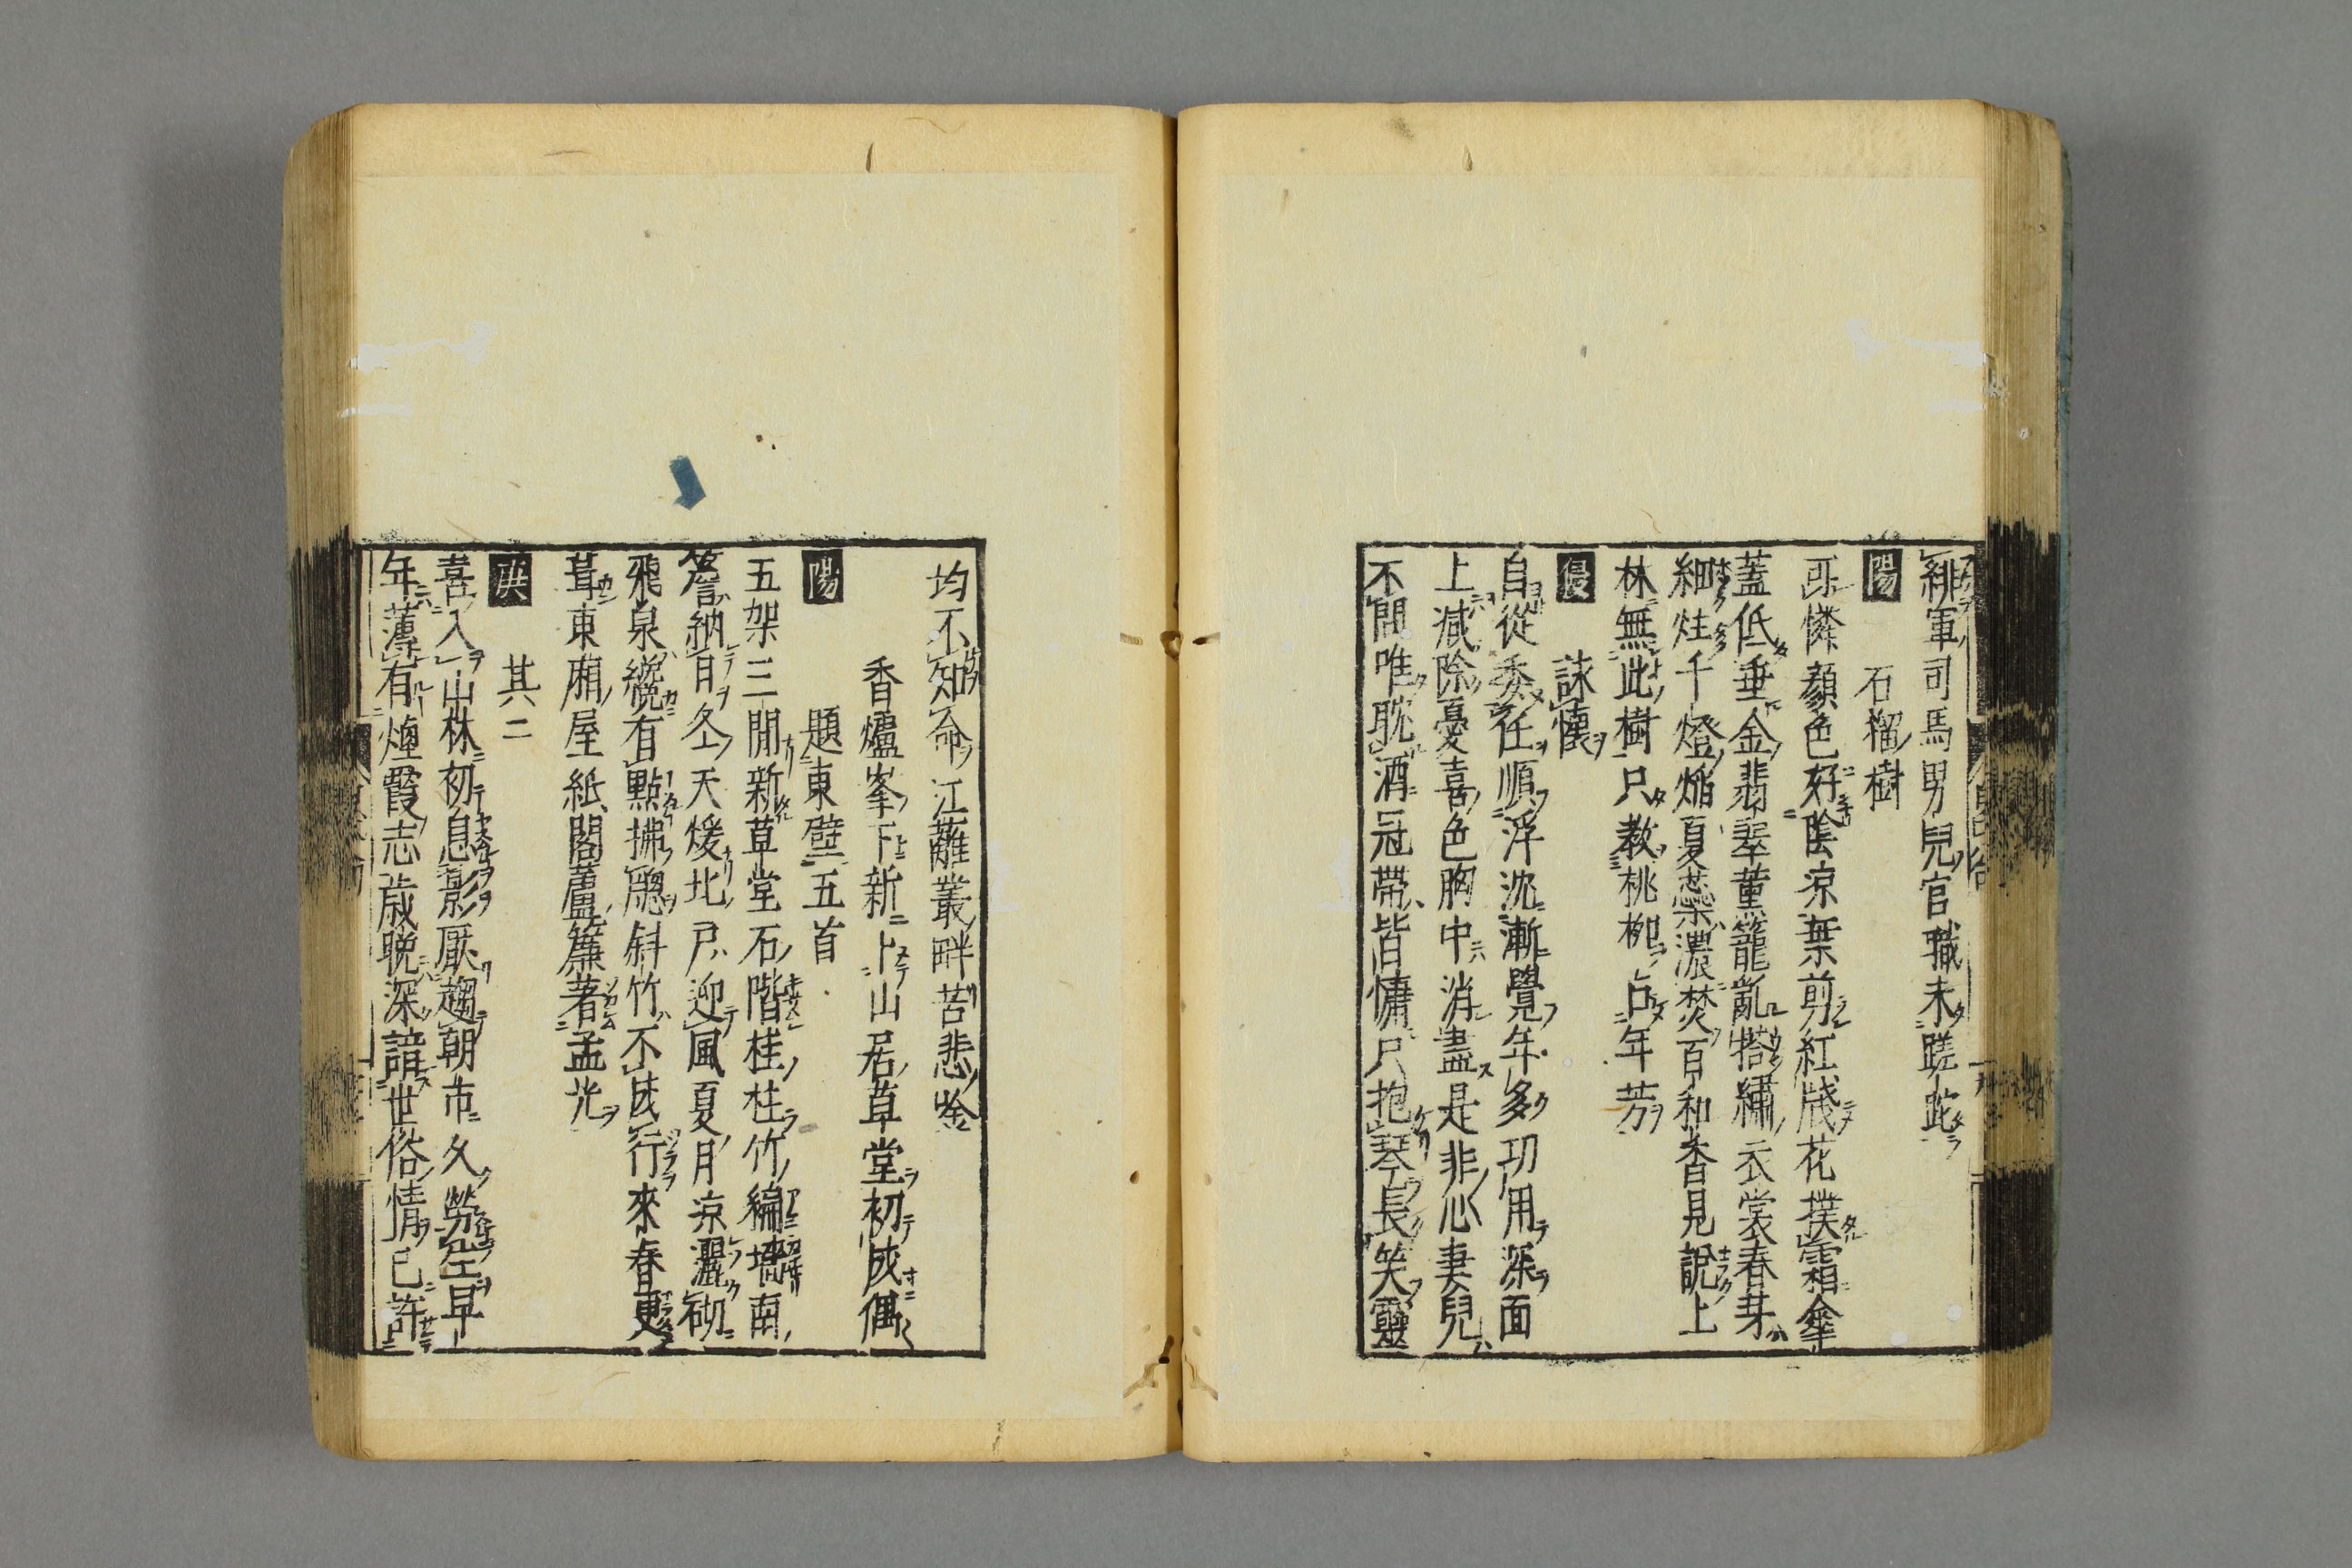 緋軍司馬男兒官職未蹉跎
陽　石榴樹
可憐顏色好陰涼葉剪紅牋花撲霜傘
蓋低垂金翡翠薰籠亂搭繡衣裳春芽
細炷千燈焰夏蕊濃焚百和香見說上
林無此樹只教桃柳占年芳
侵　詠懷
自從委順任浮沈漸覺年多功用深面
上減除憂喜色胸中消盡是非心妻兒
不問唯耽酒冠帶皆慵只抱琴長笑靈
均不知命江蘺叢畔苦悲唫
香爐峯下新卜山居草堂初成偶
題東壁五首
陽
五架三間新草堂石階桂柱竹編墻南
簷納日冬天煖北戶迎風夏月涼灑砌
飛泉纔有點拂窻斜竹不成行來春更
葺東廂屋紙閣蘆簾著孟光
其二
庚
喜入山林初息影厭趨朝市久勞空早
年薄有煙霞志歲晚深諳世俗情已許